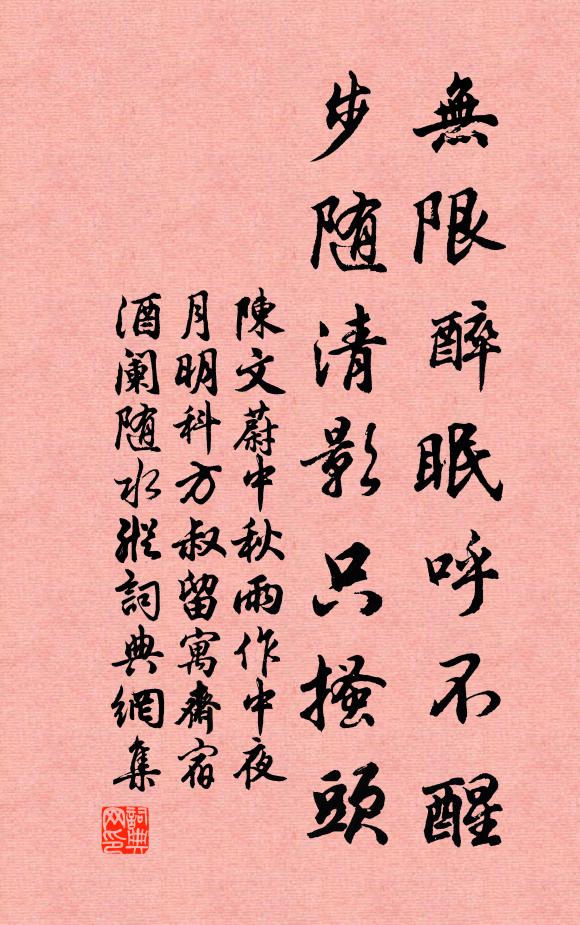 無限醉眠呼不醒
步随清影只搔頭
陳文蔚中秋雨作中夜
月明科方叔留寓齋宿
酒闌随水縱詞典網集
詞典
网印